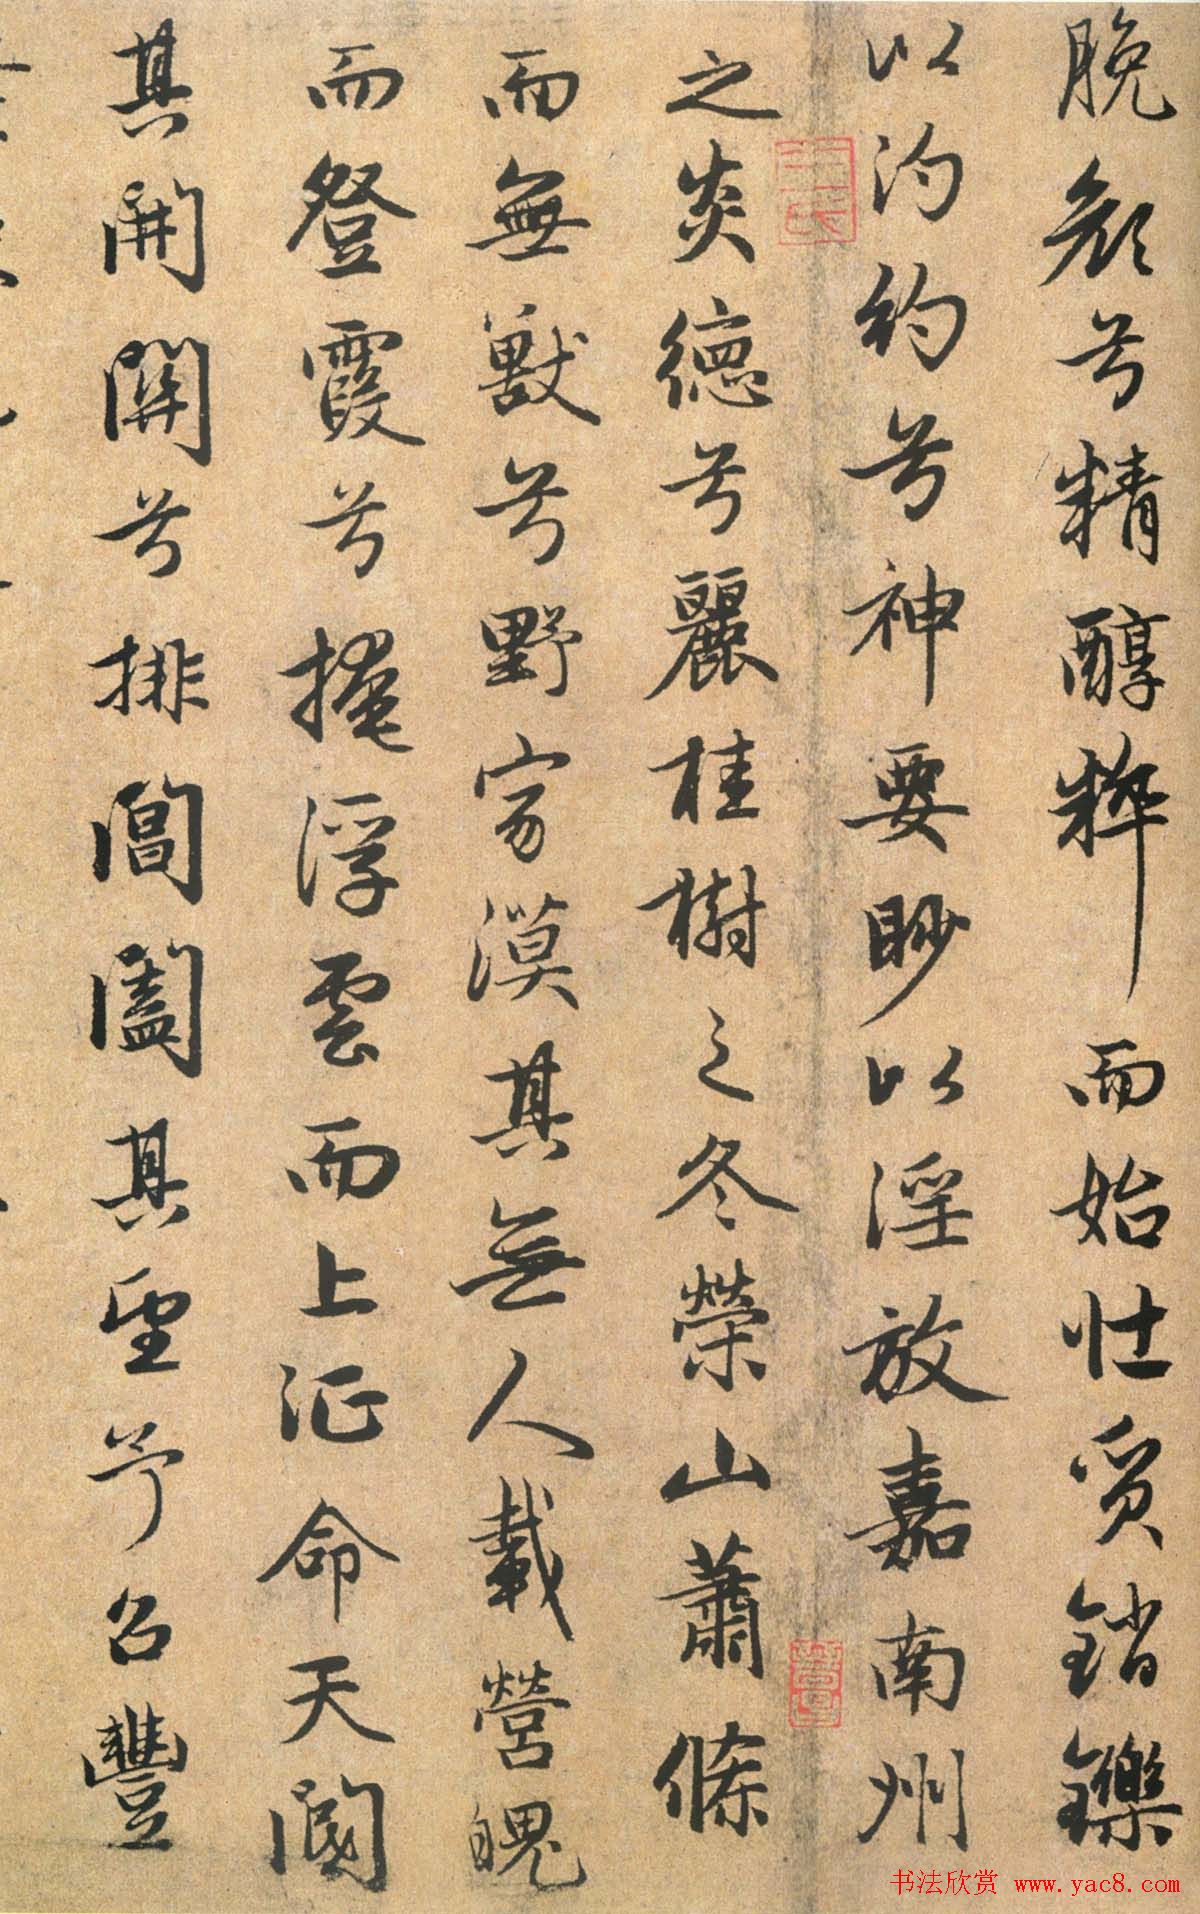 脕顔兮精醇粹而始壮質銷鑠
以汋約兮神要眇以淫放嘉南州
之炎德兮麗桂樹之冬榮山蕭條
而無獸兮野寂漠其無人載營魄
而登霞兮掩浮雲而上征命天閽
其開關兮排閶闔其望予召豐
书法欣赏 www.yac8.com